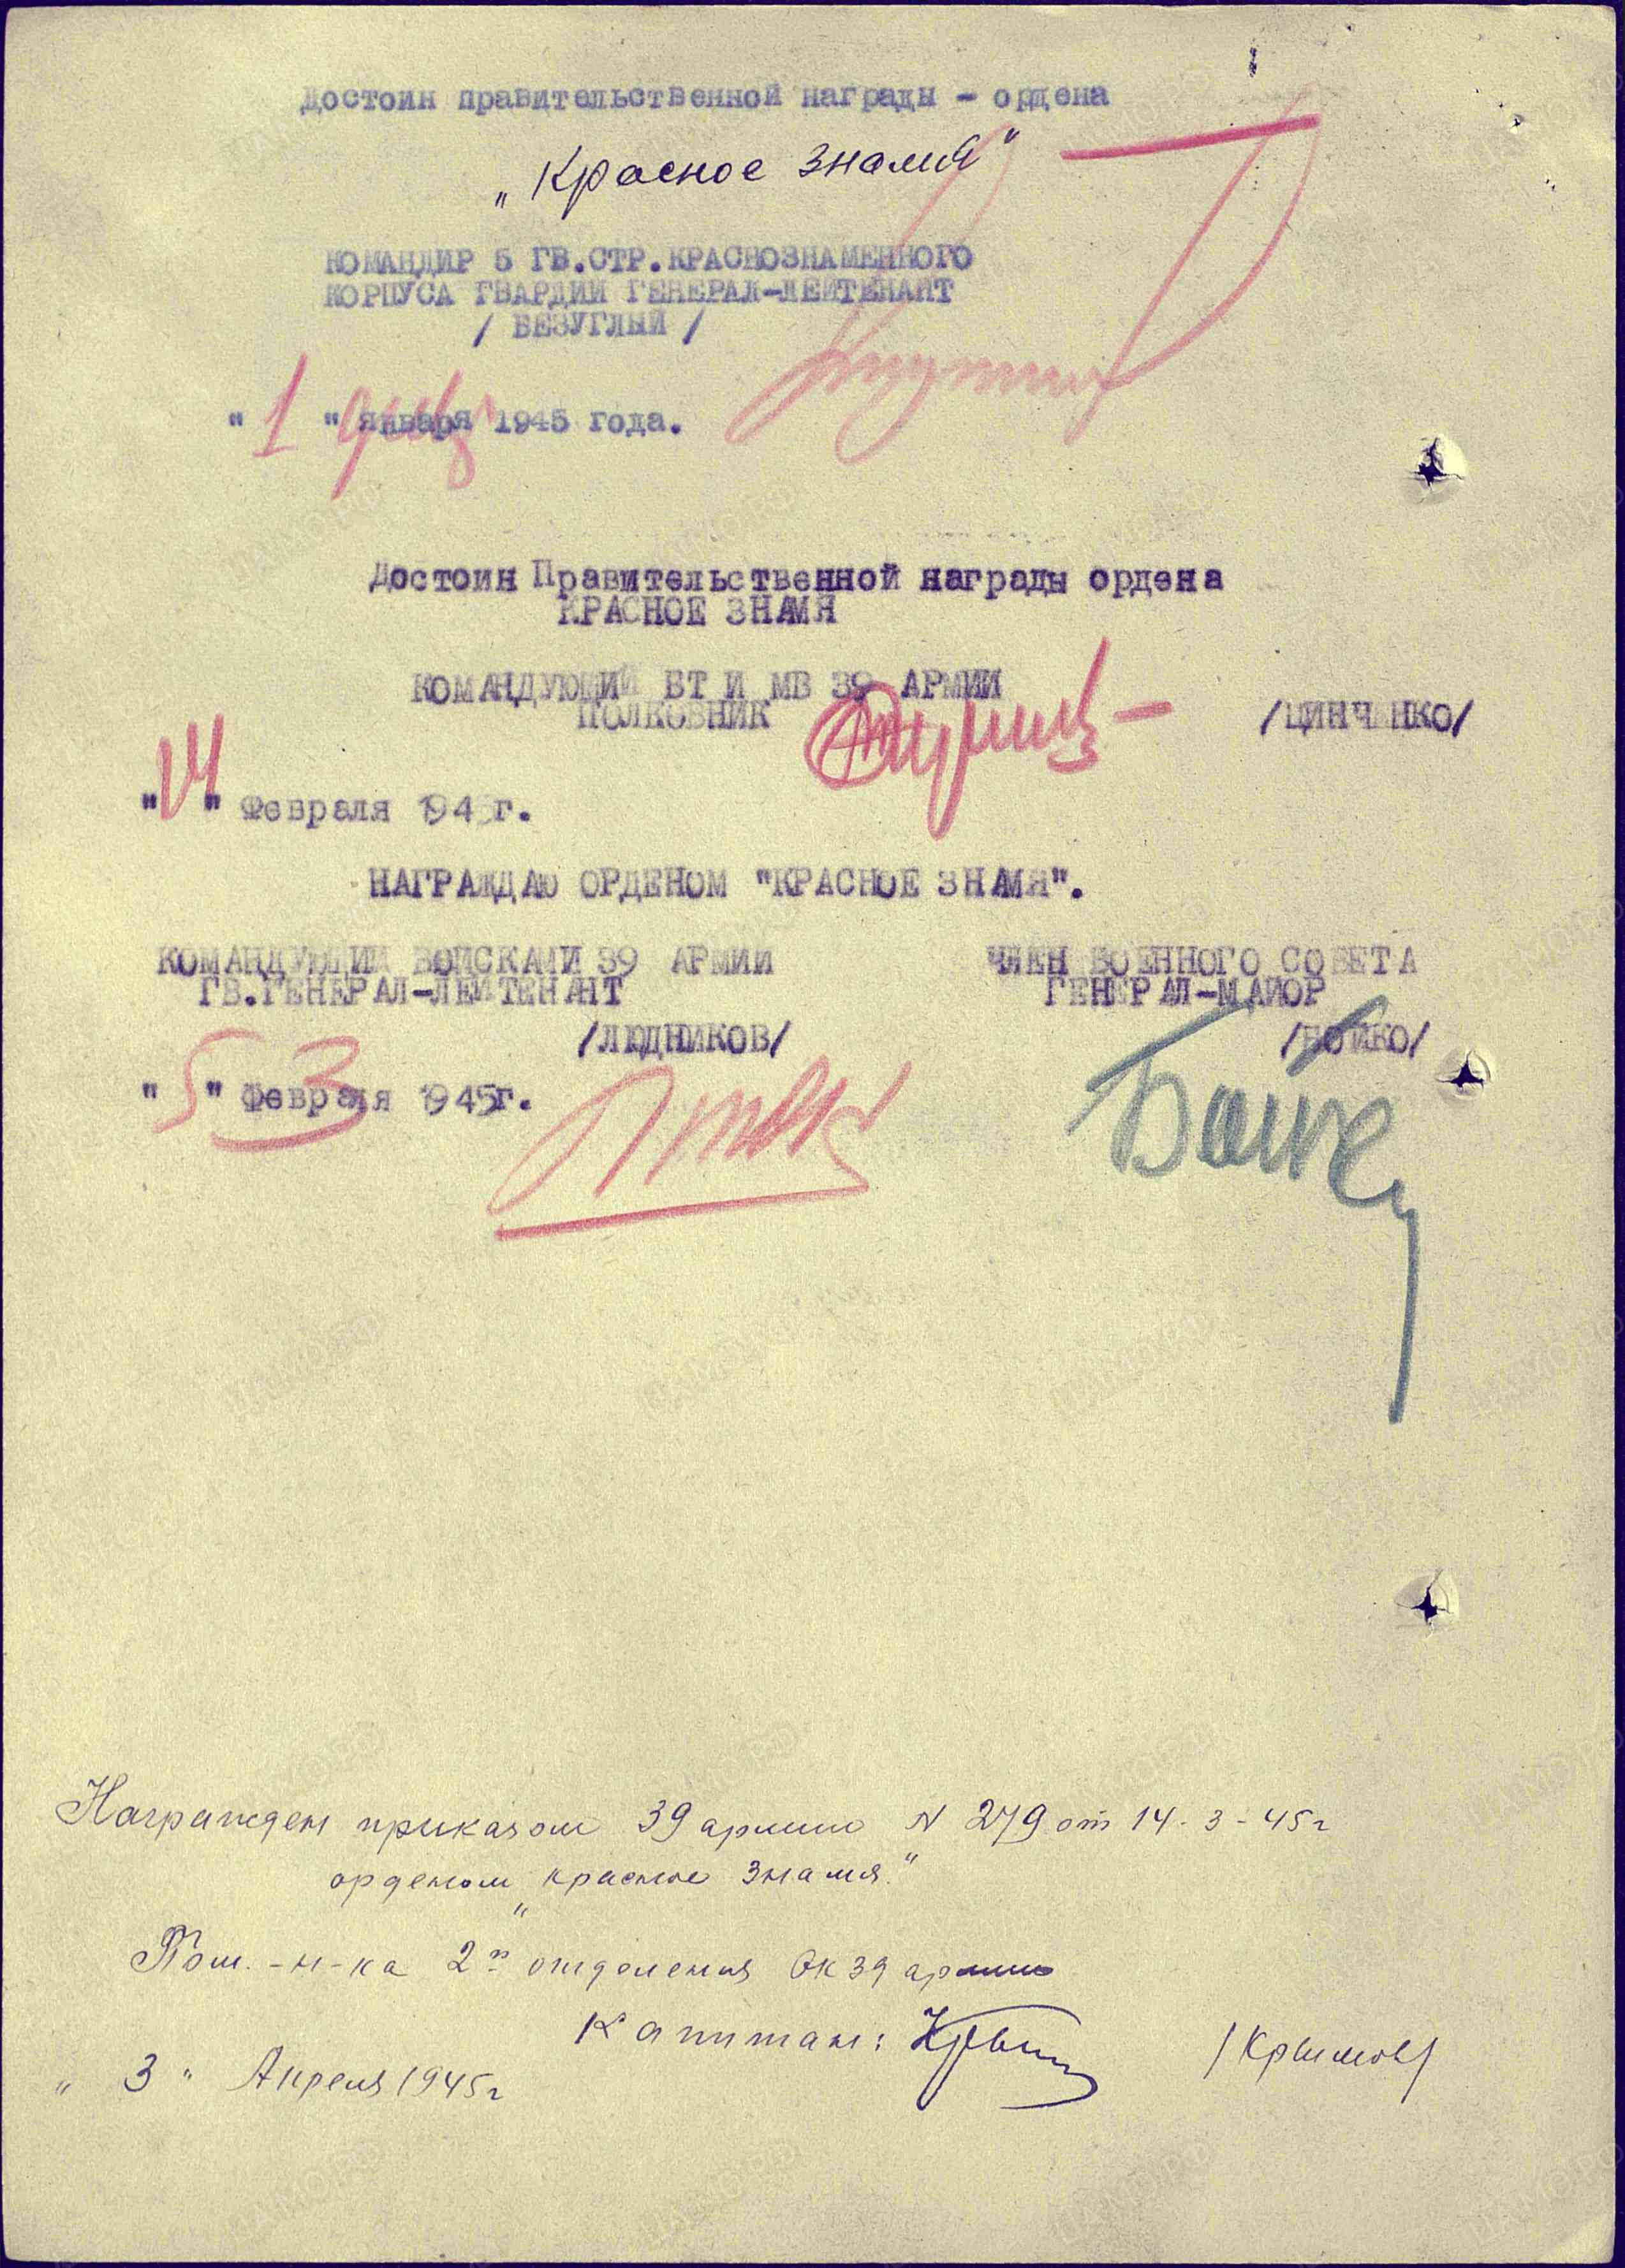 Достоин правительственной награды - ордена
„Красное Знамя"
КОМАНДИР 5 ГВ.СТР.КРАСНОЗНАМЕННОГО
КОРПУСА ГВАРДИИ ГЕНЕРАЛ-ЛЕЙТЕНАНТ
/ БЕЗУГЛЫЙ /
" 1 " января 1945 года.
Достоин Правительственной награды ордена
КРАСНОЕ ЗНАМЯ
КОМАНДУЮЩИЙ БТ И МВ 39 АРМИИ
ПОЛКОВНИК /ЦИНЧЕНКО/
" " Февраля 1945г.
НАГРАЖДАЮ ОРДЕНОМ "КРАСНОЕ ЗНАМЯ".
КОМАНДУЮЩИЙ ВОЙСКАМИ 39 АРМИИ ЧЛЕН ВОЕННОГО СОВЕТА
ГВ.ГЕНЕРАЛ-ЛЕЙТЕНАНТ ГЕНЕРАЛ-МАЙОР
/ЛЮДНИКОВ/ /БОЙКО/
" 5 " 3 Февраля 1945г.
Бойко
Награжден приказом 39 армии N 279 от 14-3-45г
орденом „Красное Знамя."
Пом.-н-ка 2го отделения ОК 39 армии
Капитан: /Крымов/
„ 3 " Апреля 1945г